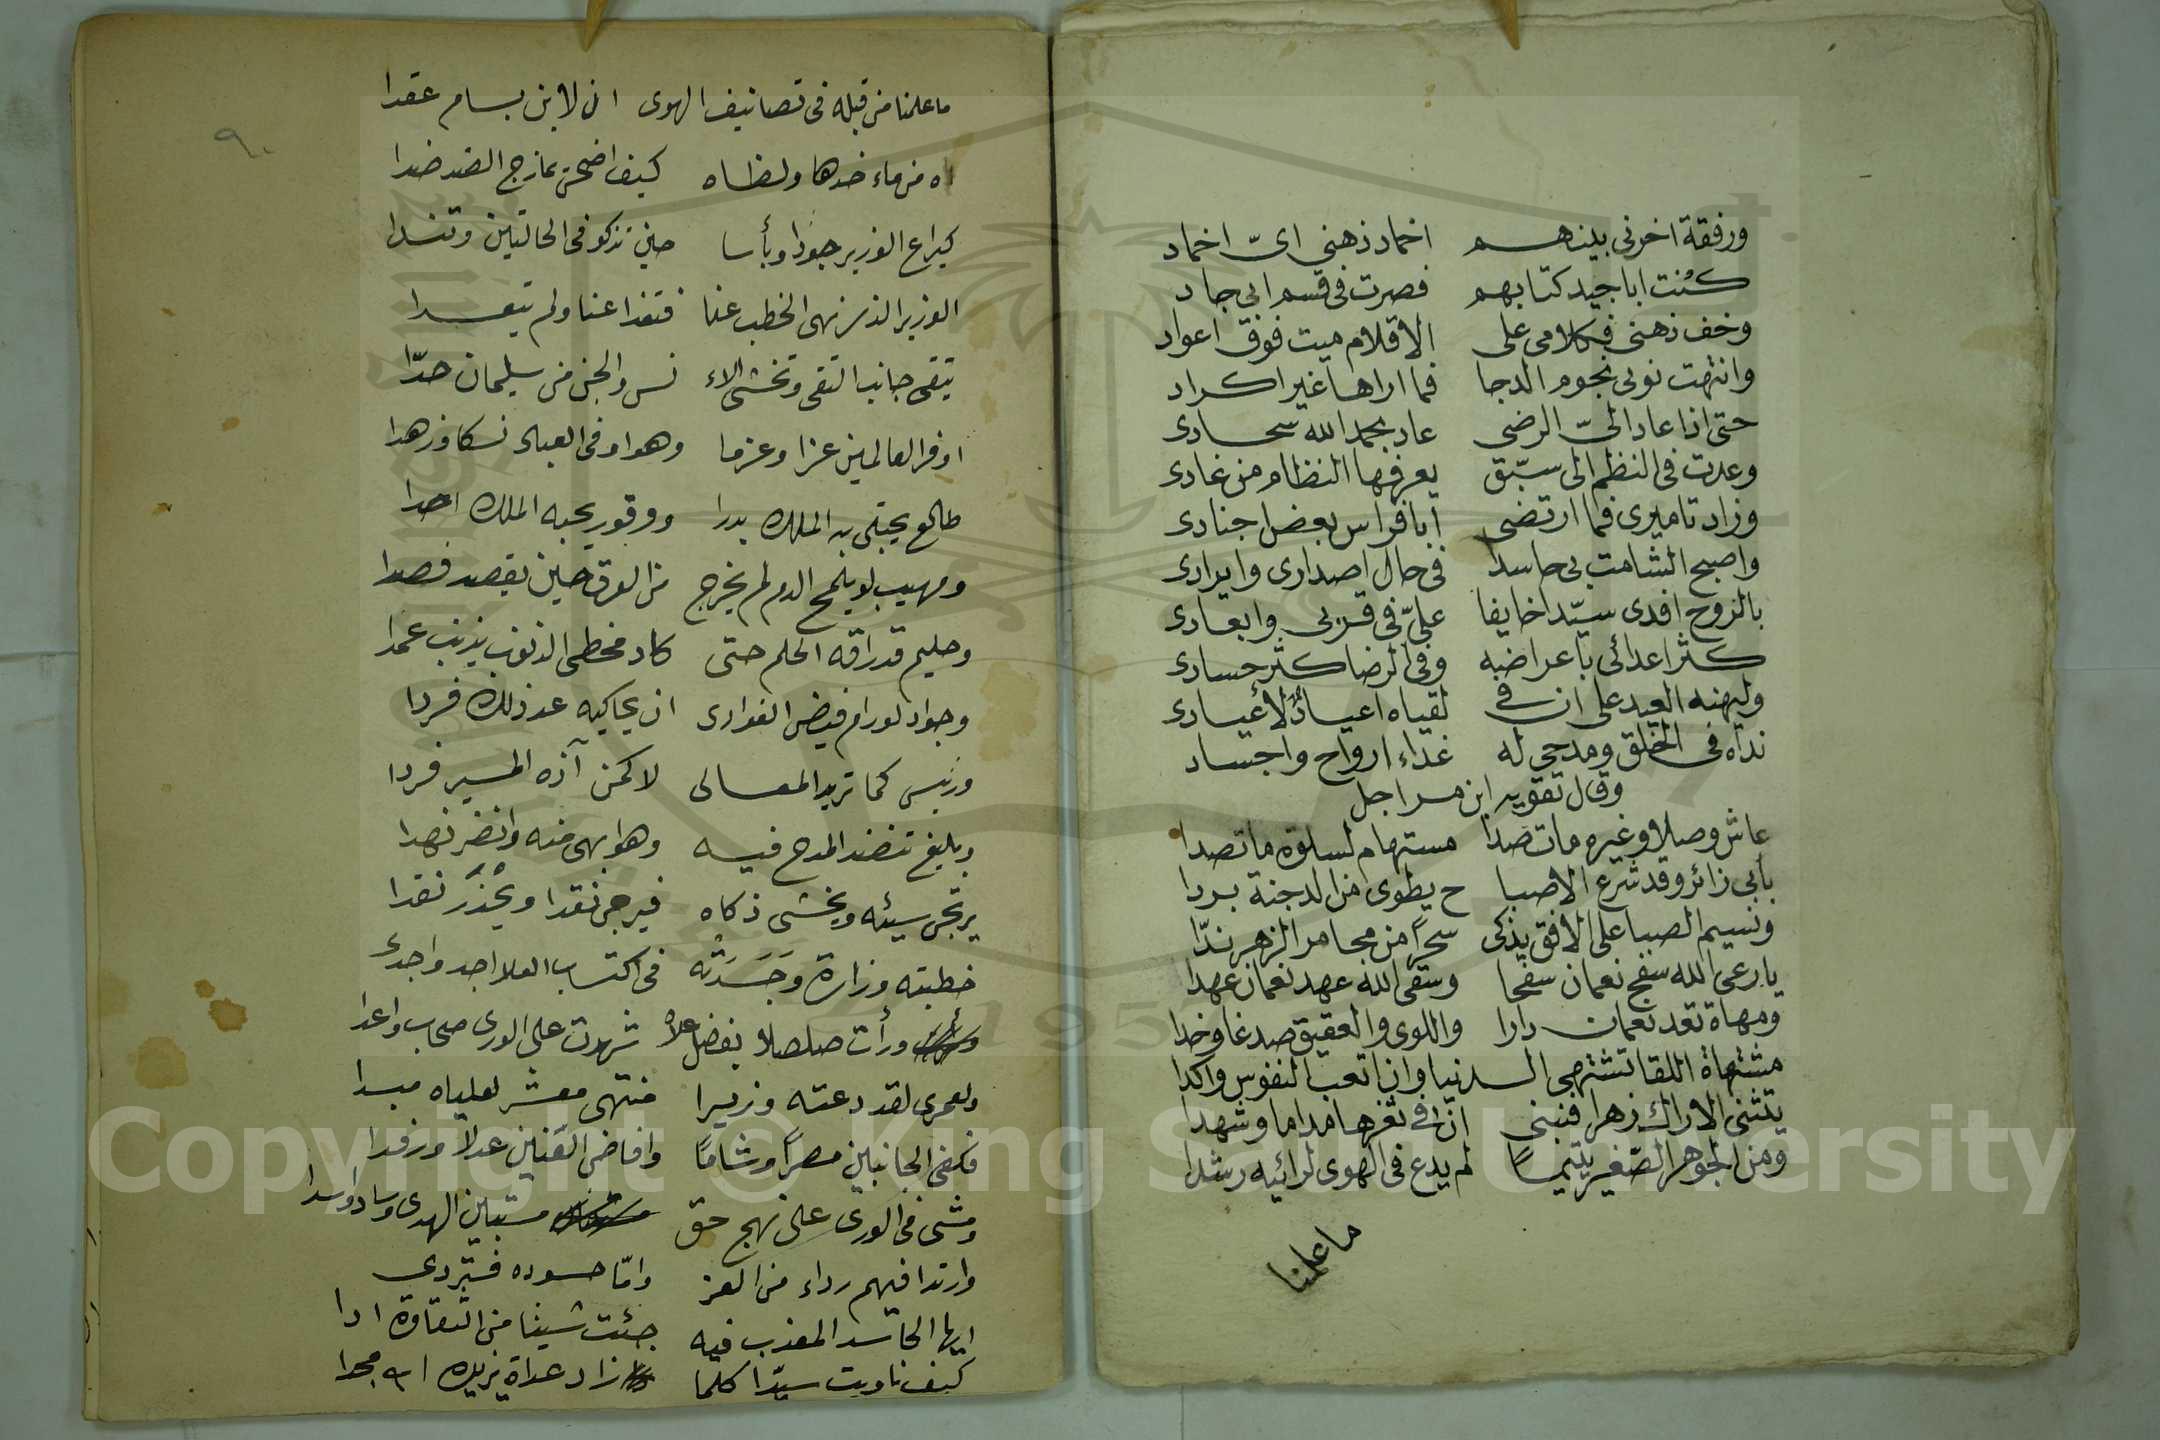 ورفقة اخرنى بينهم اخماد ذهنى اىّ اخماد
كنت اباجيد كتابهم فصرت فى قسم ابى جاد
وخف ذهنى فكلامى على الاقلام ميت فوق اعواد
وانتهت نوبى نجوم الدجا فما اراها غير اكراد
حتى اذا عاد الىّ الرضى عاد بحمد الله سحادى
وعدت فى النظم الى سبّق يعرفها النظام من غادى
وزاد تاميرى فما ارتضى ابا فراس بعض اجنادى
واصبح الشامت بى حاسدا فى حال اصدارى وايرادى
بالروح افدى سيّدا خايفا علىّ فى قربى وابعادى
كثر اعدائى باعراضه وفى الرضا كثر حسادى
وليهنه العيد على ان فى لقياه اعيادٌ لأعيادى
نداه فى الخلق ومدحى له غذاء ارواح واجساد
وقال تقوية ابن مراجل
عاش وصلا وغيره مات صدا مستهام لسلوة ما تصدا
بابى زائر وقد شرع الاصبا ح يطوى من الدجنة بردا
ونسيم الصبا على الافق يذكى سحرًا من مجامر الزهر ندّا
يا رعى الله سفح نعمان سفحا وسقى الله عهد نعمان عهدا
ومهاة تعد نعمان دارا واللوى والعقيق صدغا وخدا
مشتهاة اللقا تشتهى الدنيا وان اتعب النفوس واكدا
يتثنى الاراك زهرا فنبنى انّ فى ثغرها مداما وشهدا
ومن الجوهر الصّغير يتيمًا لم يدع فى الهوى لرائيه رشدا
ما علمنا
٩٠
ما علمنا من قبله فى تصانيف الهوى ان لابن بسام عقدا
اه من ماء خدها ولظاه كيف اضحى يمازج الضد ضدا
كيراع الوزير جودا وبأسا حين تزكو فى الحالتين وتندا
الوزير الذى نهى الخطب عنا فتغدا عنا ولم يتعدا
يتقى جانب التقى وتخشى الاء نس والجن من سليمان حدّا
اوفر العالمين عزا وعزما وهو اوفى العباد نسكا وزهدا
طالع يجتلى به الملك بدرا ووقور يحبه الملك احدا
ومهيب لو يلمح الدم لم يخرج من العرق حين يقصد فصدا
وحليم قد راقه الحلم حتى كاد مخطى الذنوب يذنب عمدا
وجواد لو رام فيض الغوادى ان يحاكيه عد ذلك فردا
ورئيس كما تريد المعالى لا كمن آده المسير فردا
وبليغ تنضد المدح فيه وهو ابهى منه وانضر نضدا
يرتجى سيبه ويخشى ذكاه فيرجى نقدا ويُحْذَر نقدا
خطبته وزارة وَجَدَتْه فى اكتساب العلا اجد واجدى
ورأت صلصلا بفضل علاه شهدت على الورى صحاب واعدا
ولعمرى لقد دعته وزيرا منتهى معشر لعلياه مبدا
فكفى الجانبين مصرًا وشامًا وافاض الغنين عدلا ورفدا
ومشى فى الورى على نهج حق مستبين الهدى وساد واسدا
وارتدا فيهم رداء من العز وامّا حسوده فتردى
ايها الحاسد المعذب فيه جئت شيئا من الشقاوة ادا
كيف ناويت سيّدا كلما زاد عداة يزيده الله مجدا
Copyright © King Saud University
1957